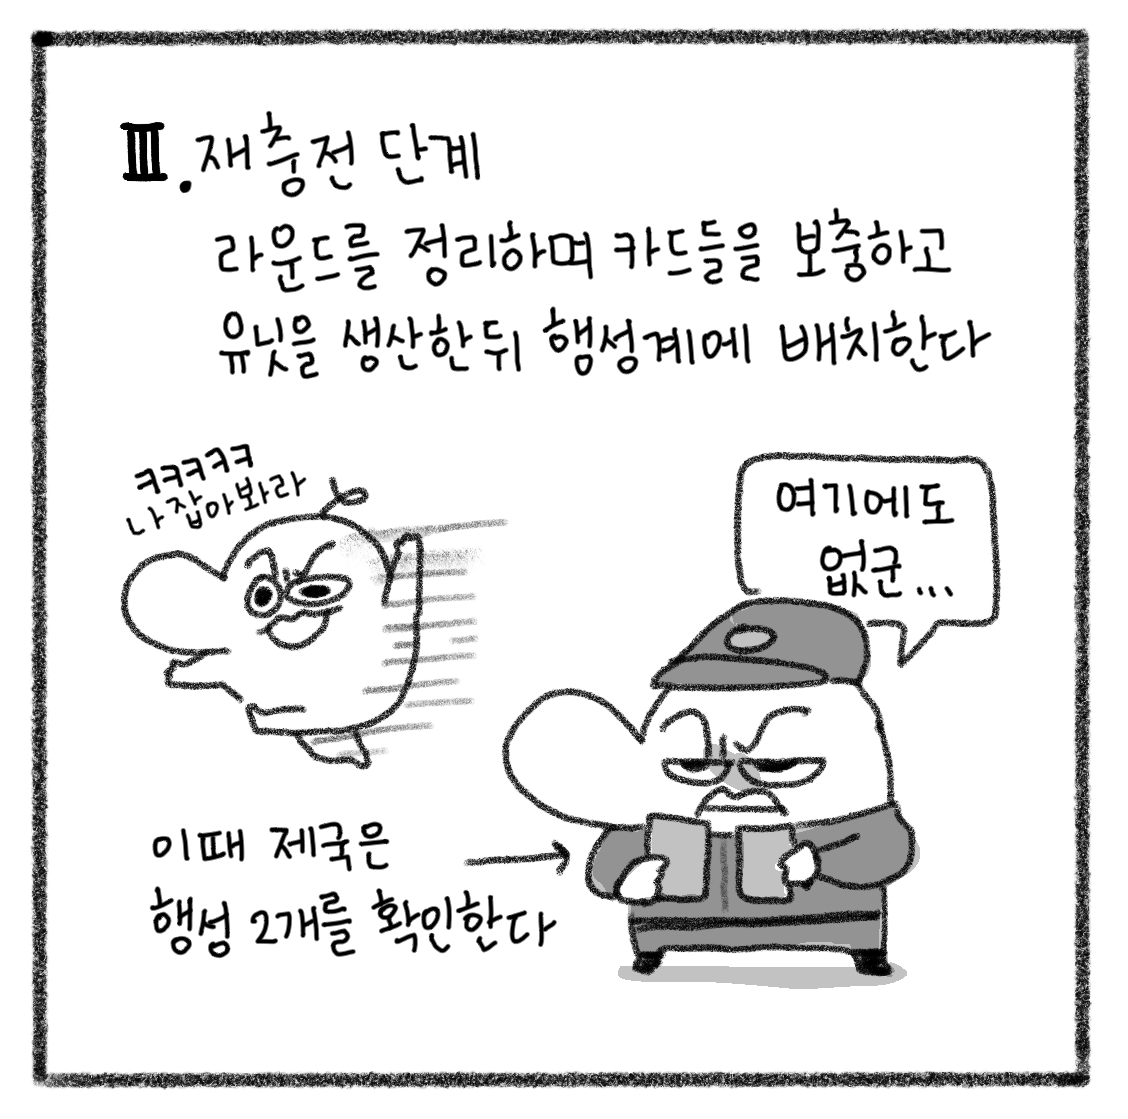 Ⅲ. 재충전 단계
라운드를 정리하며 카드들을 보충하고
유닛을 생산한뒤 행성계에 배치한다
ㅋㅋㅋㅋㅋ
나 잡아봐라
여기에도
없군...
이때 제국은
행성 2개를 확인한다